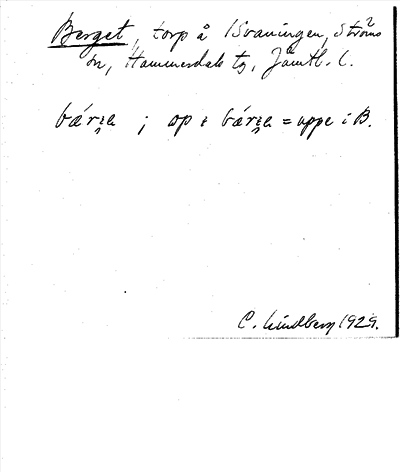 Berget, torp å 1 Svaningen, Ströms
sn, Hammerdals tg, Jämtl. l.
bárʒa ; op i bárʒa = uppe i B.
C. Lindberg 1929.